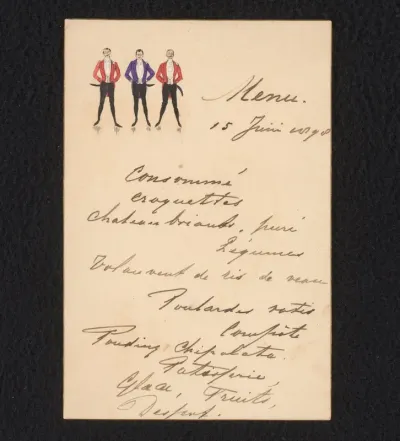 Menu.
15 Juin 1898
Consommé
croquettes
Chateaubriants, puré
Légumes
Volauvent de ris de veau
Poulardes roties
Compôte
Pouding Chipolata.
Patisserie,
Glace, Fruits,
Dessert.